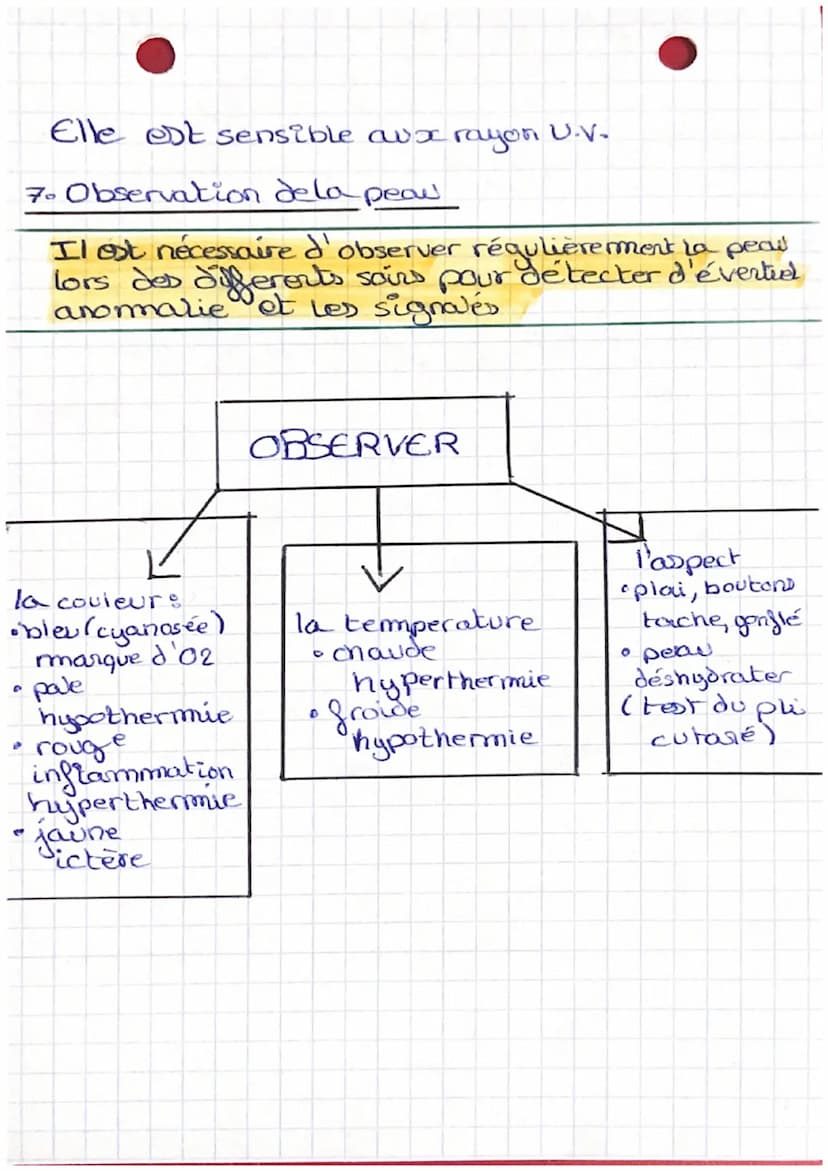 Elle est sensible aux rayon U.V.
7. Observation de la peau
Il est nécessaire d'observer régulièrement la peau
lors des differents soins pour détecter d'éventuel
anomalie et les signalés
OBSERVER
la couleur :
• bleu (cyanosée)
manque d'O2
• pale
hypothermie
• rouge
inflammation
hyperthermie
• jaune
ictère
la temperature
• chaude
hyperthermie
• froide
hypothermie
l'aspect
• plai, boutons
tache, gonflé
• peau
déshydrater
(test du pli
cutané)